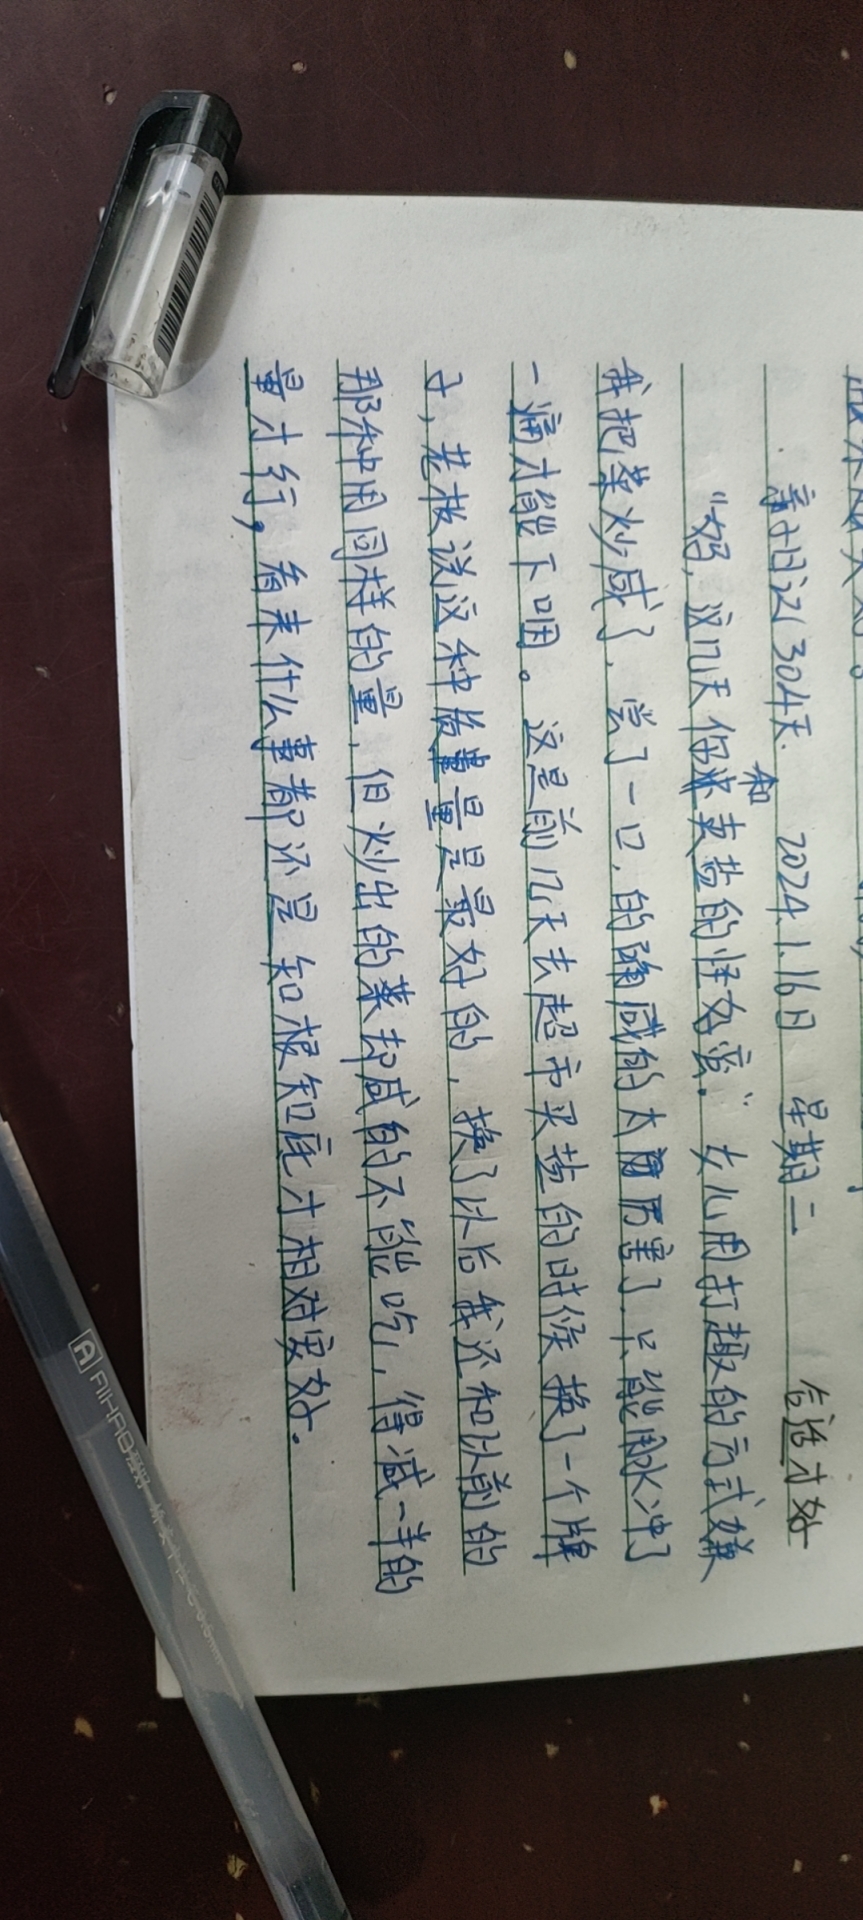 亲子日记304天 2024.1.16日 星期二 合适才好
"妈,这几天你和卖盐的怪好蛮"女儿用打趣的方式嫌
我把菜炒咸了,尝了一口,的确咸的太厉害了,只能用水冲了
一通才能下咽。这是前几天去超市买盐的时候换了一个牌
子,老板说这种质量是最好的,换了以后我还和以前的
那种用同样的量,但炒出的菜却咸的不能吃,得减一半的
量才行,看来什么事都还是知根知底才相对安好.
A AIHAO 爱好
0.5mm